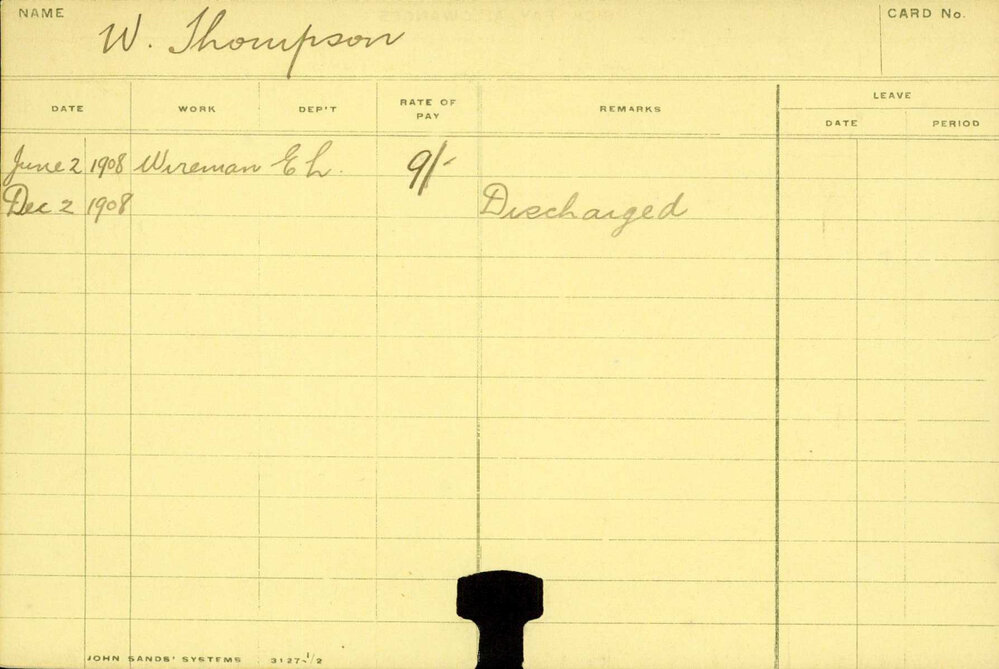 NAME W. Thompson CARD No.
DATE WORK DEP'T RATE OF PAY REMARKS LEAVE
DATE PERIOD
June 2 1908 Wireman E L. 9/-
Dec 2 1908 Discharged
JOHN SANDS' SYSTEMS 3127-1/2